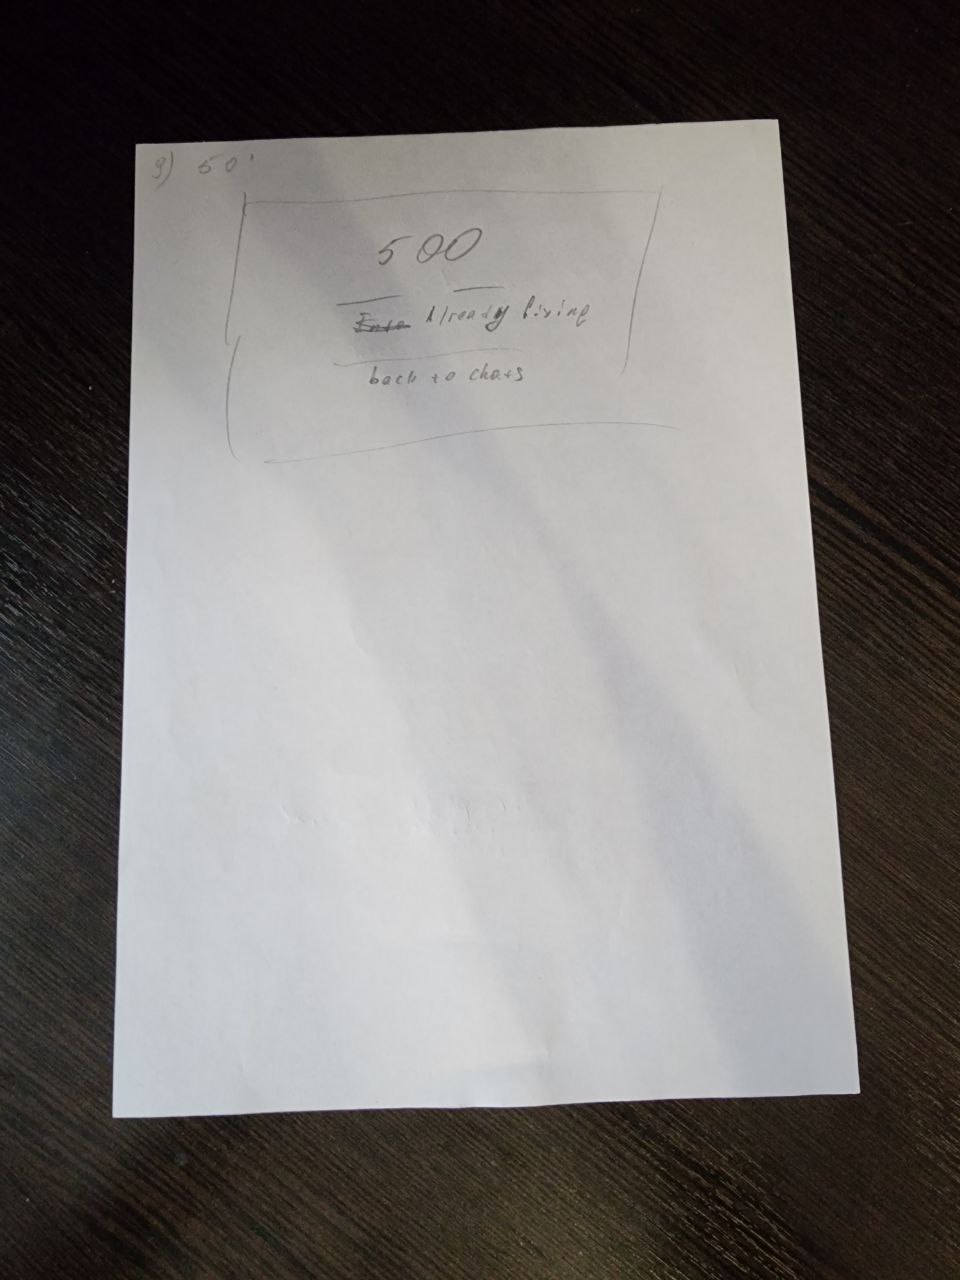 9) 50'
500
Already fixing
back to chats